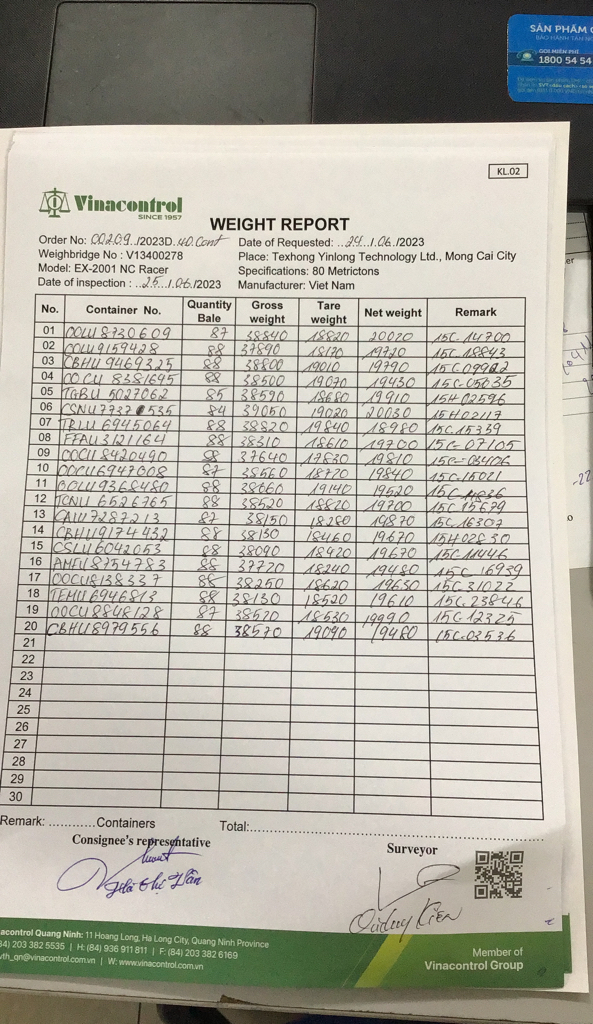 SẢN PHẨM
BẢO HÀNH TẬN
GỌI MIỄN PHÍ
1800 54 54
KL.02
Vinacontrol
SINCE 1957
WEIGHT REPORT
Order No: 00209./2023D.40.Cont Date of Requested: ..24../.06./2023
Weighbridge No : V13400278 Place: Texhong Yinlong Technology Ltd., Mong Cai City
Model: EX-2001 NC Racer Specifications: 80 Metrictons
Date of inspection : ..25../.06./2023 Manufacturer: Viet Nam
No. Container No. Quantity Bale Gross weight Tare weight Net weight Remark
01 OOLU8730609 87 38840 18820 20020 15C-14700
02 OOLU9159428 88 37890 18170 19720 15C-18843
03 CBHU 9469325 88 38800 19010 19790
04 88 38500 19070 19430 15C-05035
05 85 38590 18680 19910 15H02596
06 84 39050 19020 20030 15H02117
07 TRLU 6945064 88 38820 19840 18980 15C15339
08 FFAU3121164 88 38310 18610 19700 15C-07105
09 OOCU8420490 37640 17830 19810
10 OOCU6947008 87 38560 18720 19840 15C-15021
11 88 38660 19140 19520
12 TCNU 6526765 88 38520 18820 19700 15C-15679
13 CAIU7287213 87 38150 18280 19870 15C-16307
14 CBHU9174432 88 38130 18460 19670 15H02830
15 CSLU6042053 88 38090 18420 19670 15C11446
16 AMFU8754783 88 37720 18240 19480 15C-16939
17 OOCU8138337 88 38250 18620 19630 15C-31022
18 TEMU6946813 88 38130 18520 19610 15C-23846
19 OOCU8848128 87 38520 18530 19990 15C-12325
20 CBHU8979556 88 38570 19090 19480 15C-03536
21
22
23
24
25
26
27
28
29
30
Remark: ............Containers Total:
Consignee's representative Surveyor
acontrol Quang Ninh: 11 Hoang Long, Ha Long City, Quang Ninh Province
84) 203 382 5535 | H: (84) 936 911 811 | F: (84) 203 382 6169
vth_qn@vinacontrol.com.vn | W: www.vinacontrol.com.vn
Member of
Vinacontrol Group